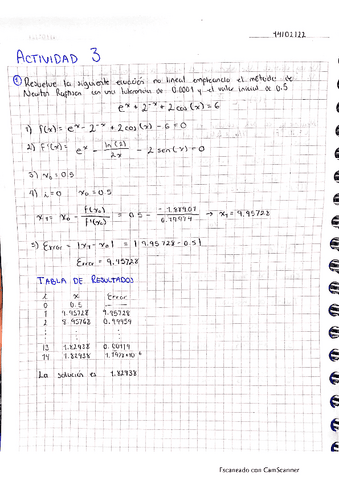 14/02/22
ACTIVIDAD 3
① Resuelve la siguiente ecuación no lineal empleando el método de
Newton Raphson con una tolerancia de 0.0001 y el valor inicial de 0.5
eˣ + 2⁻ˣ + 2cos(x) = 6
1) f(x) = eˣ - 2⁻ˣ + 2cos(x) - 6 = 0
2) F'(x) = eˣ - ln(2)/2x - 2 sen(x) = 0
3) x₀ = 0.5
4) i = 0 x₀ = 0.5
x₁ = x₀ - f(x₀)/f'(x₀) = 0.5 - → x₁ = 9.95728
5) Error = |x₁ - x₀| = |9.95728 - 0.5|
Error = 9.45728
TABLA DE RESULTADOS
i x Error
0 0.5 -
1 9.95728 9.45728
2 8.95768 0.99959
⋮ ⋮ ⋮
13 1.82938
14 1.82938
La solución es 1.82938
Escaneado con CamScanner